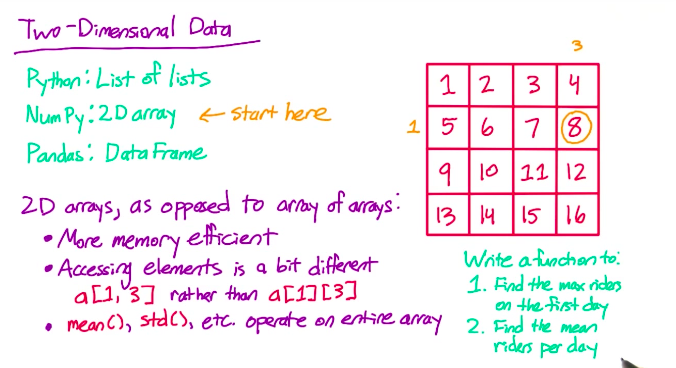 Two-Dimensional Data
Python: List of lists
NumPy: 2D array ← start here
Pandas: DataFrame
2D arrays, as opposed to array of arrays:
• More memory efficient
• Accessing elements is a bit different
a[1, 3] rather than a[1][3]
• mean(), std(), etc. operate on entire array
3
1 2 3 4
1 5 6 7 8
9 10 11 12
13 14 15 16
Write a function to:
1. Find the max riders
on the first day
2. Find the mean
riders per day